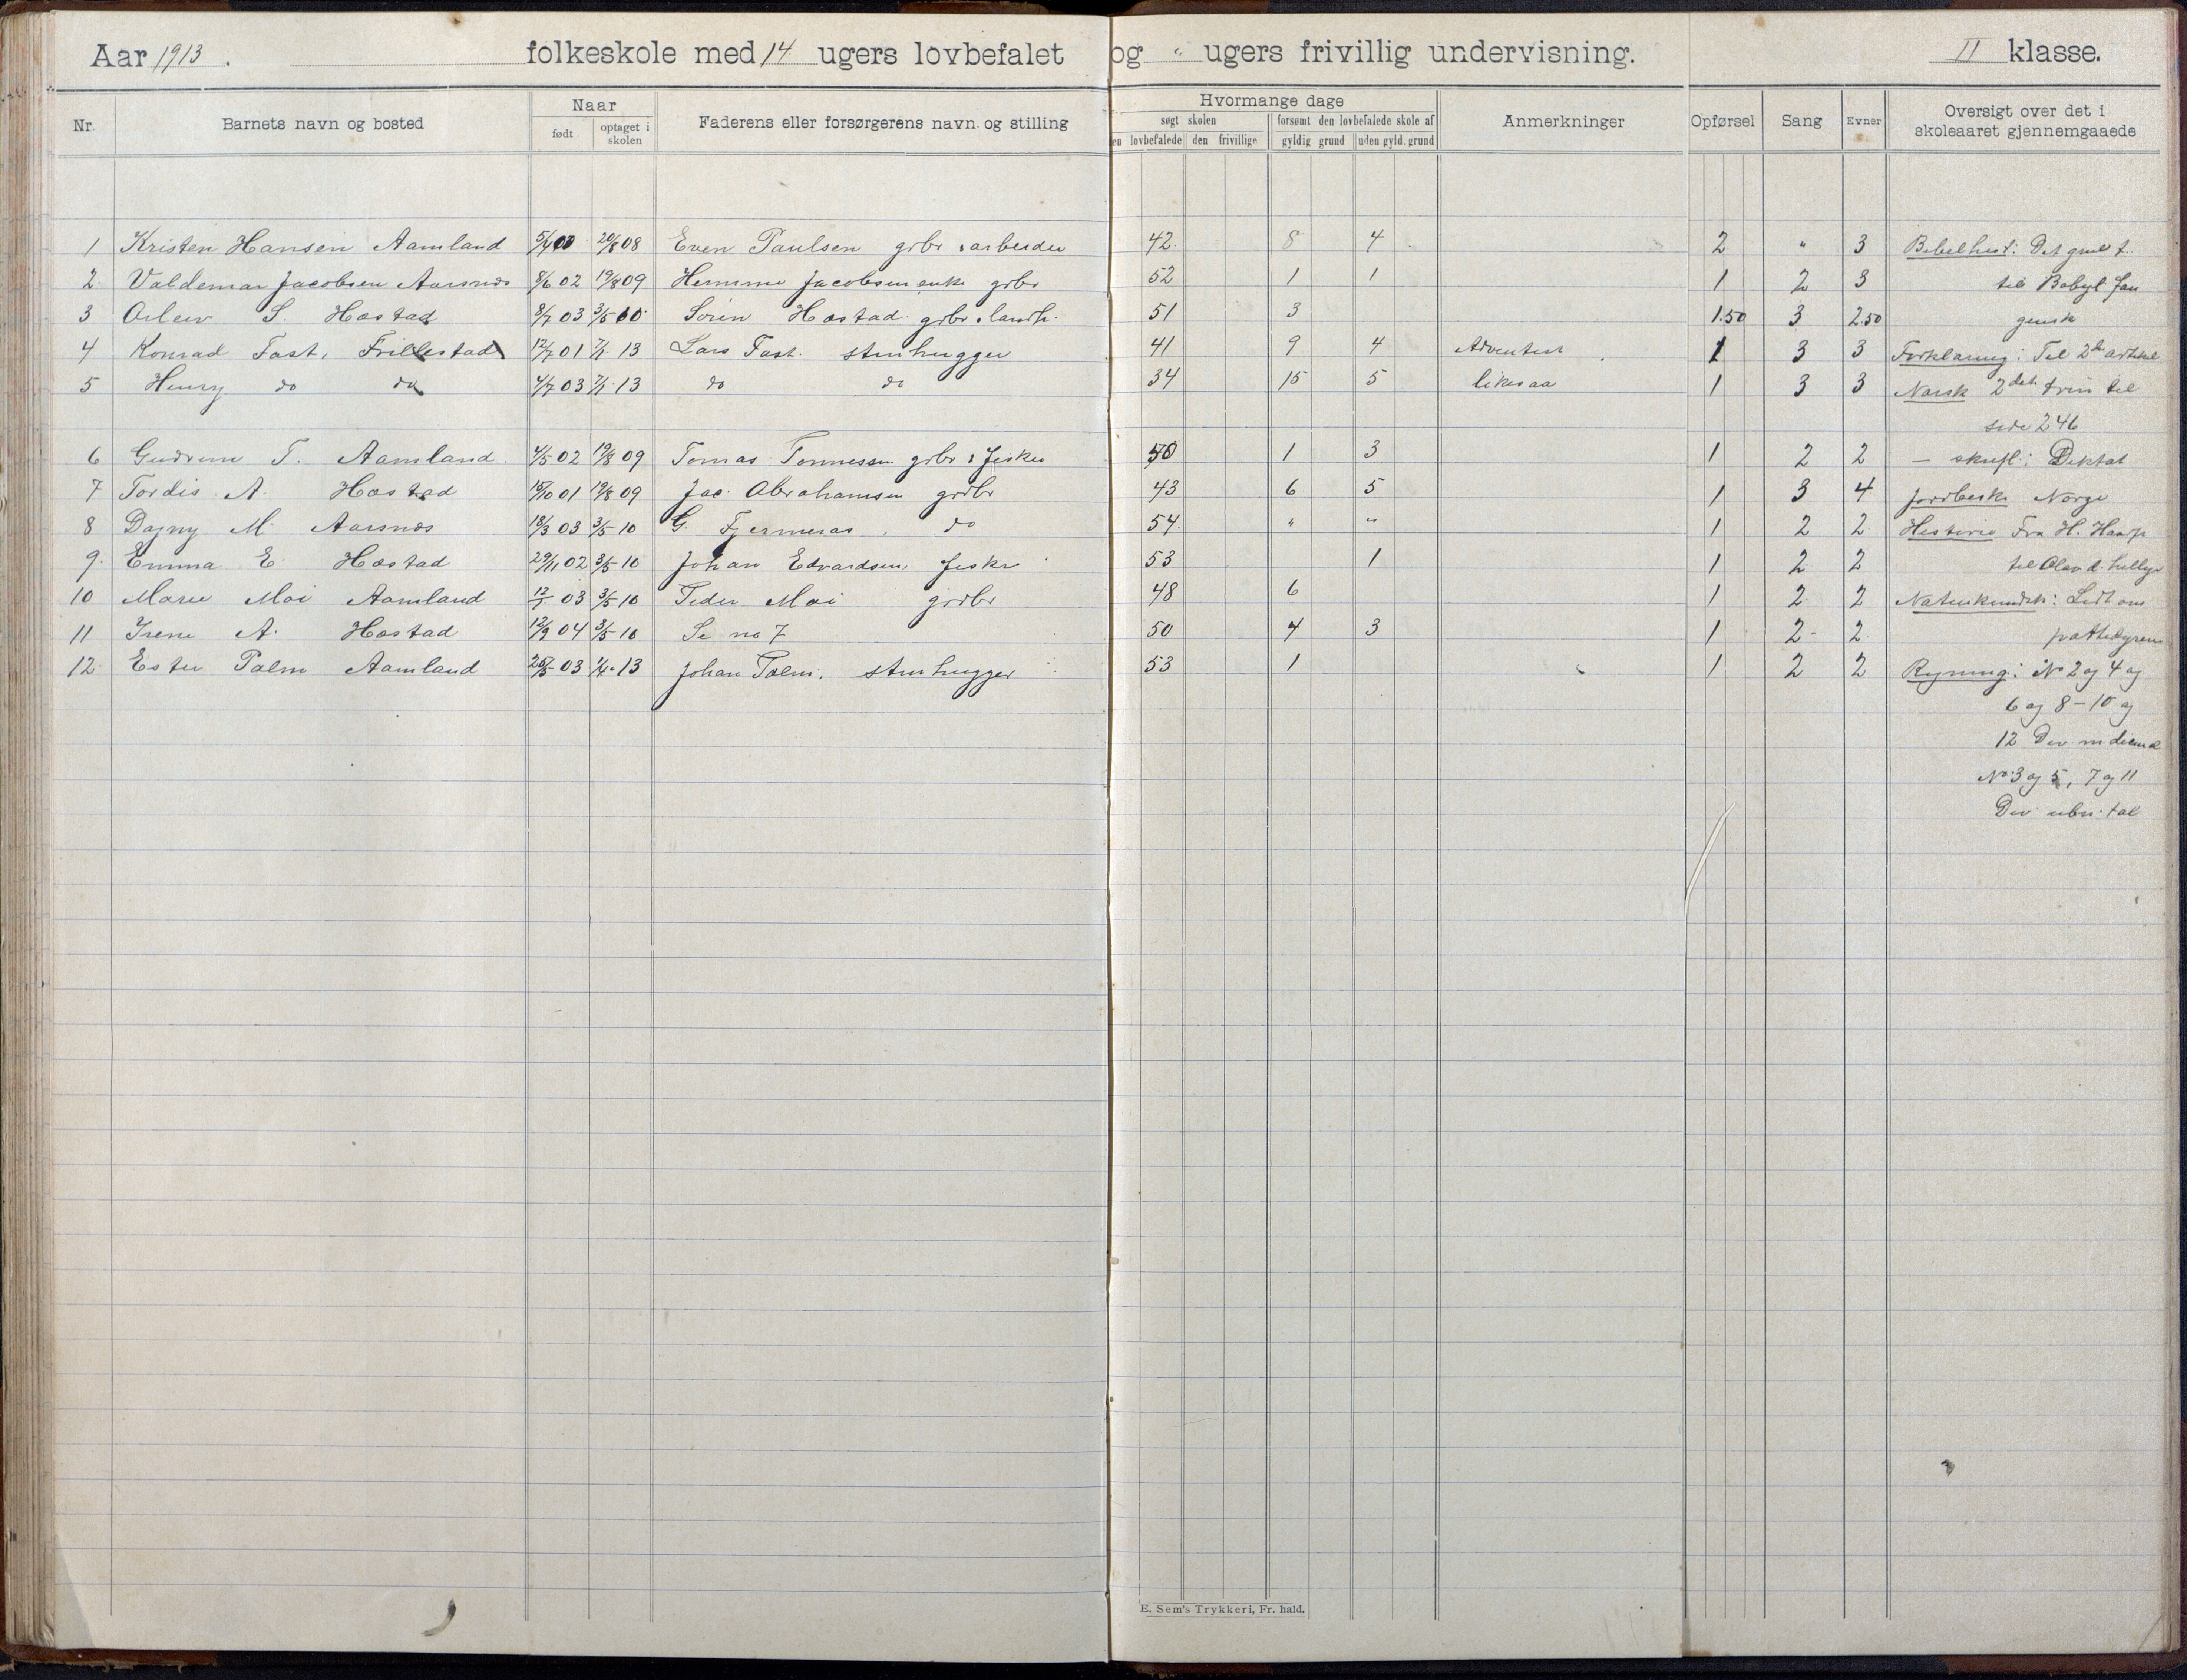 Aar 1913. folkeskole med 14 ugers lovbefalet og " ugers frivillig undervisning. II klasse.
Nr. Barnets navn og bosted Naar født optaget i skolen Faderens eller forsørgerens navn og stilling Hvormange dage søgt skolen en lovbefalede den frivillige forsømt den lovbefalede skole af gyldig grund uden gyld. grund Anmerkninger Opførsel Sang Evner Oversigt over det i skoleaaret gjennemgaaede
1 Kristen Hansen Aamland 5/4 00 20/8 08 Even Paulsen grbr & arbeider 42 8 4 2 " 3 Bibelhist: Det gml t.
2 Valdemar Jacobsen Aarsnes 8/6 02 19/8 09 Jacobsen enke grbr 52 1 1 1 2 3 til Babyl fan
3 S. Hæstad 8/7 03 3/5 10 Sørin Hæstad grbr & landh. 51 3 1.50 3 2.50 gensk
4 Konrad Fast, Frillestad 12/7 01 7/1 13 Lars Fast. stenhugger 41 9 4 Adventist 1 3 3 Forklaring: Til 2den artikel
5 Henry do do 4/7 03 7/1 13 do do 34 15 5 likesaa 1 3 3 Norsk 2det trin til
side 246
6 Gudrun T. Aamland 4/5 02 19/8 09 Tomas Tønnessen grbr & fisker 50 1 3 1 2 2 - skriftl: Diktat
7 Tordis A. Hæstad 15/10 01 19/8 09 Jac. Abrahamsen grdbr 43 6 5 1 3 4 Jordbeskr Norge
8 Dagny M. Aarsnes 18/3 03 3/5 10 G. Fjermeros do 54 " " 1 2 2 Historie Fra H. Haarf
9. Emma E. Hæstad 29/11 02 3/5 10 Johan Edvardsen fisker 53 1 1 2 2 til Olav d. hellige
10 Marie Moi Aamland 12/1 03 3/5 10 Peder Moi grdbr 48 6 1 2 2 Naturkundsk: Lidt om
11 Irene A. Hæstad 12/9 04 3/5 10 Se no 7 50 4 3 1 2 2 pattedyrene
12 Ester Palm Aamland 25/5 03 1/4 13 Johan Palm. stenhugger 53 1 1 2 2 Regning: No 2 og 4 og
6 og 8-10 og
12 Div. m. decimal
No 3 og 5, 7 og 11
Div ubn. tal
E. Sem's Trykkeri, Fr. hald.